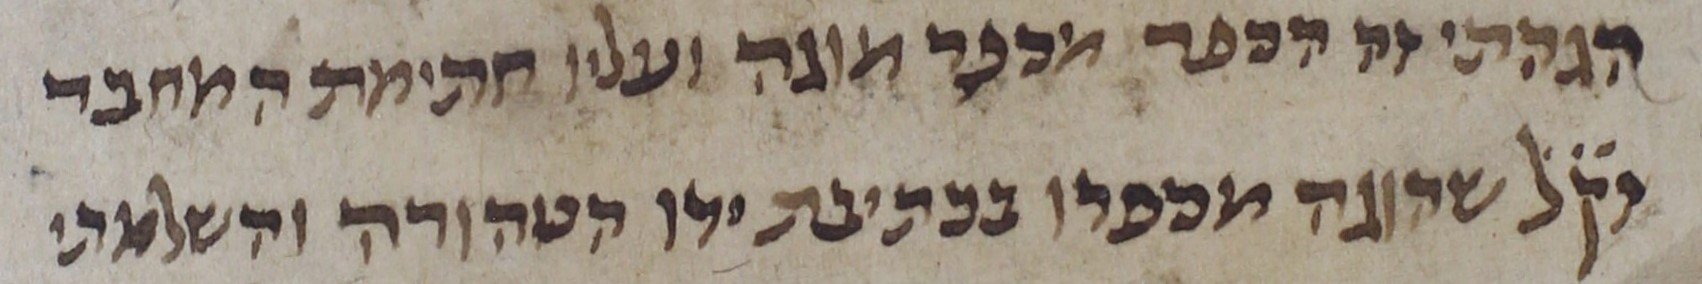 הגהתי זה הספר מספר מוגה ועליו חתימת המחבר
זק̇ל̇ שהוגה מספרו בכתיבת ידו הטהורה והשלמתי